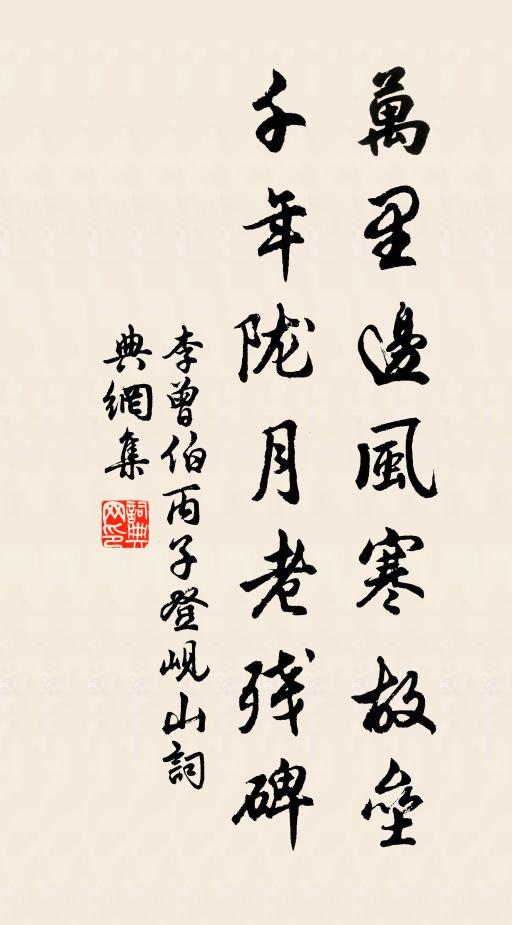 萬里邊風寒故壘
千年陇月老残碑
李曾伯丙子登岘山詞
典網集
詞典
网印